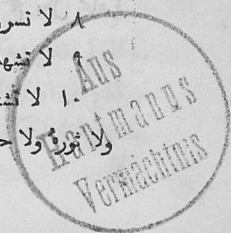 ٨ لا تسر
٩ لا تشه
١٠ لا تش
ولا ثوره ولا ح
Aus
Hartmanns
Vermächtnis